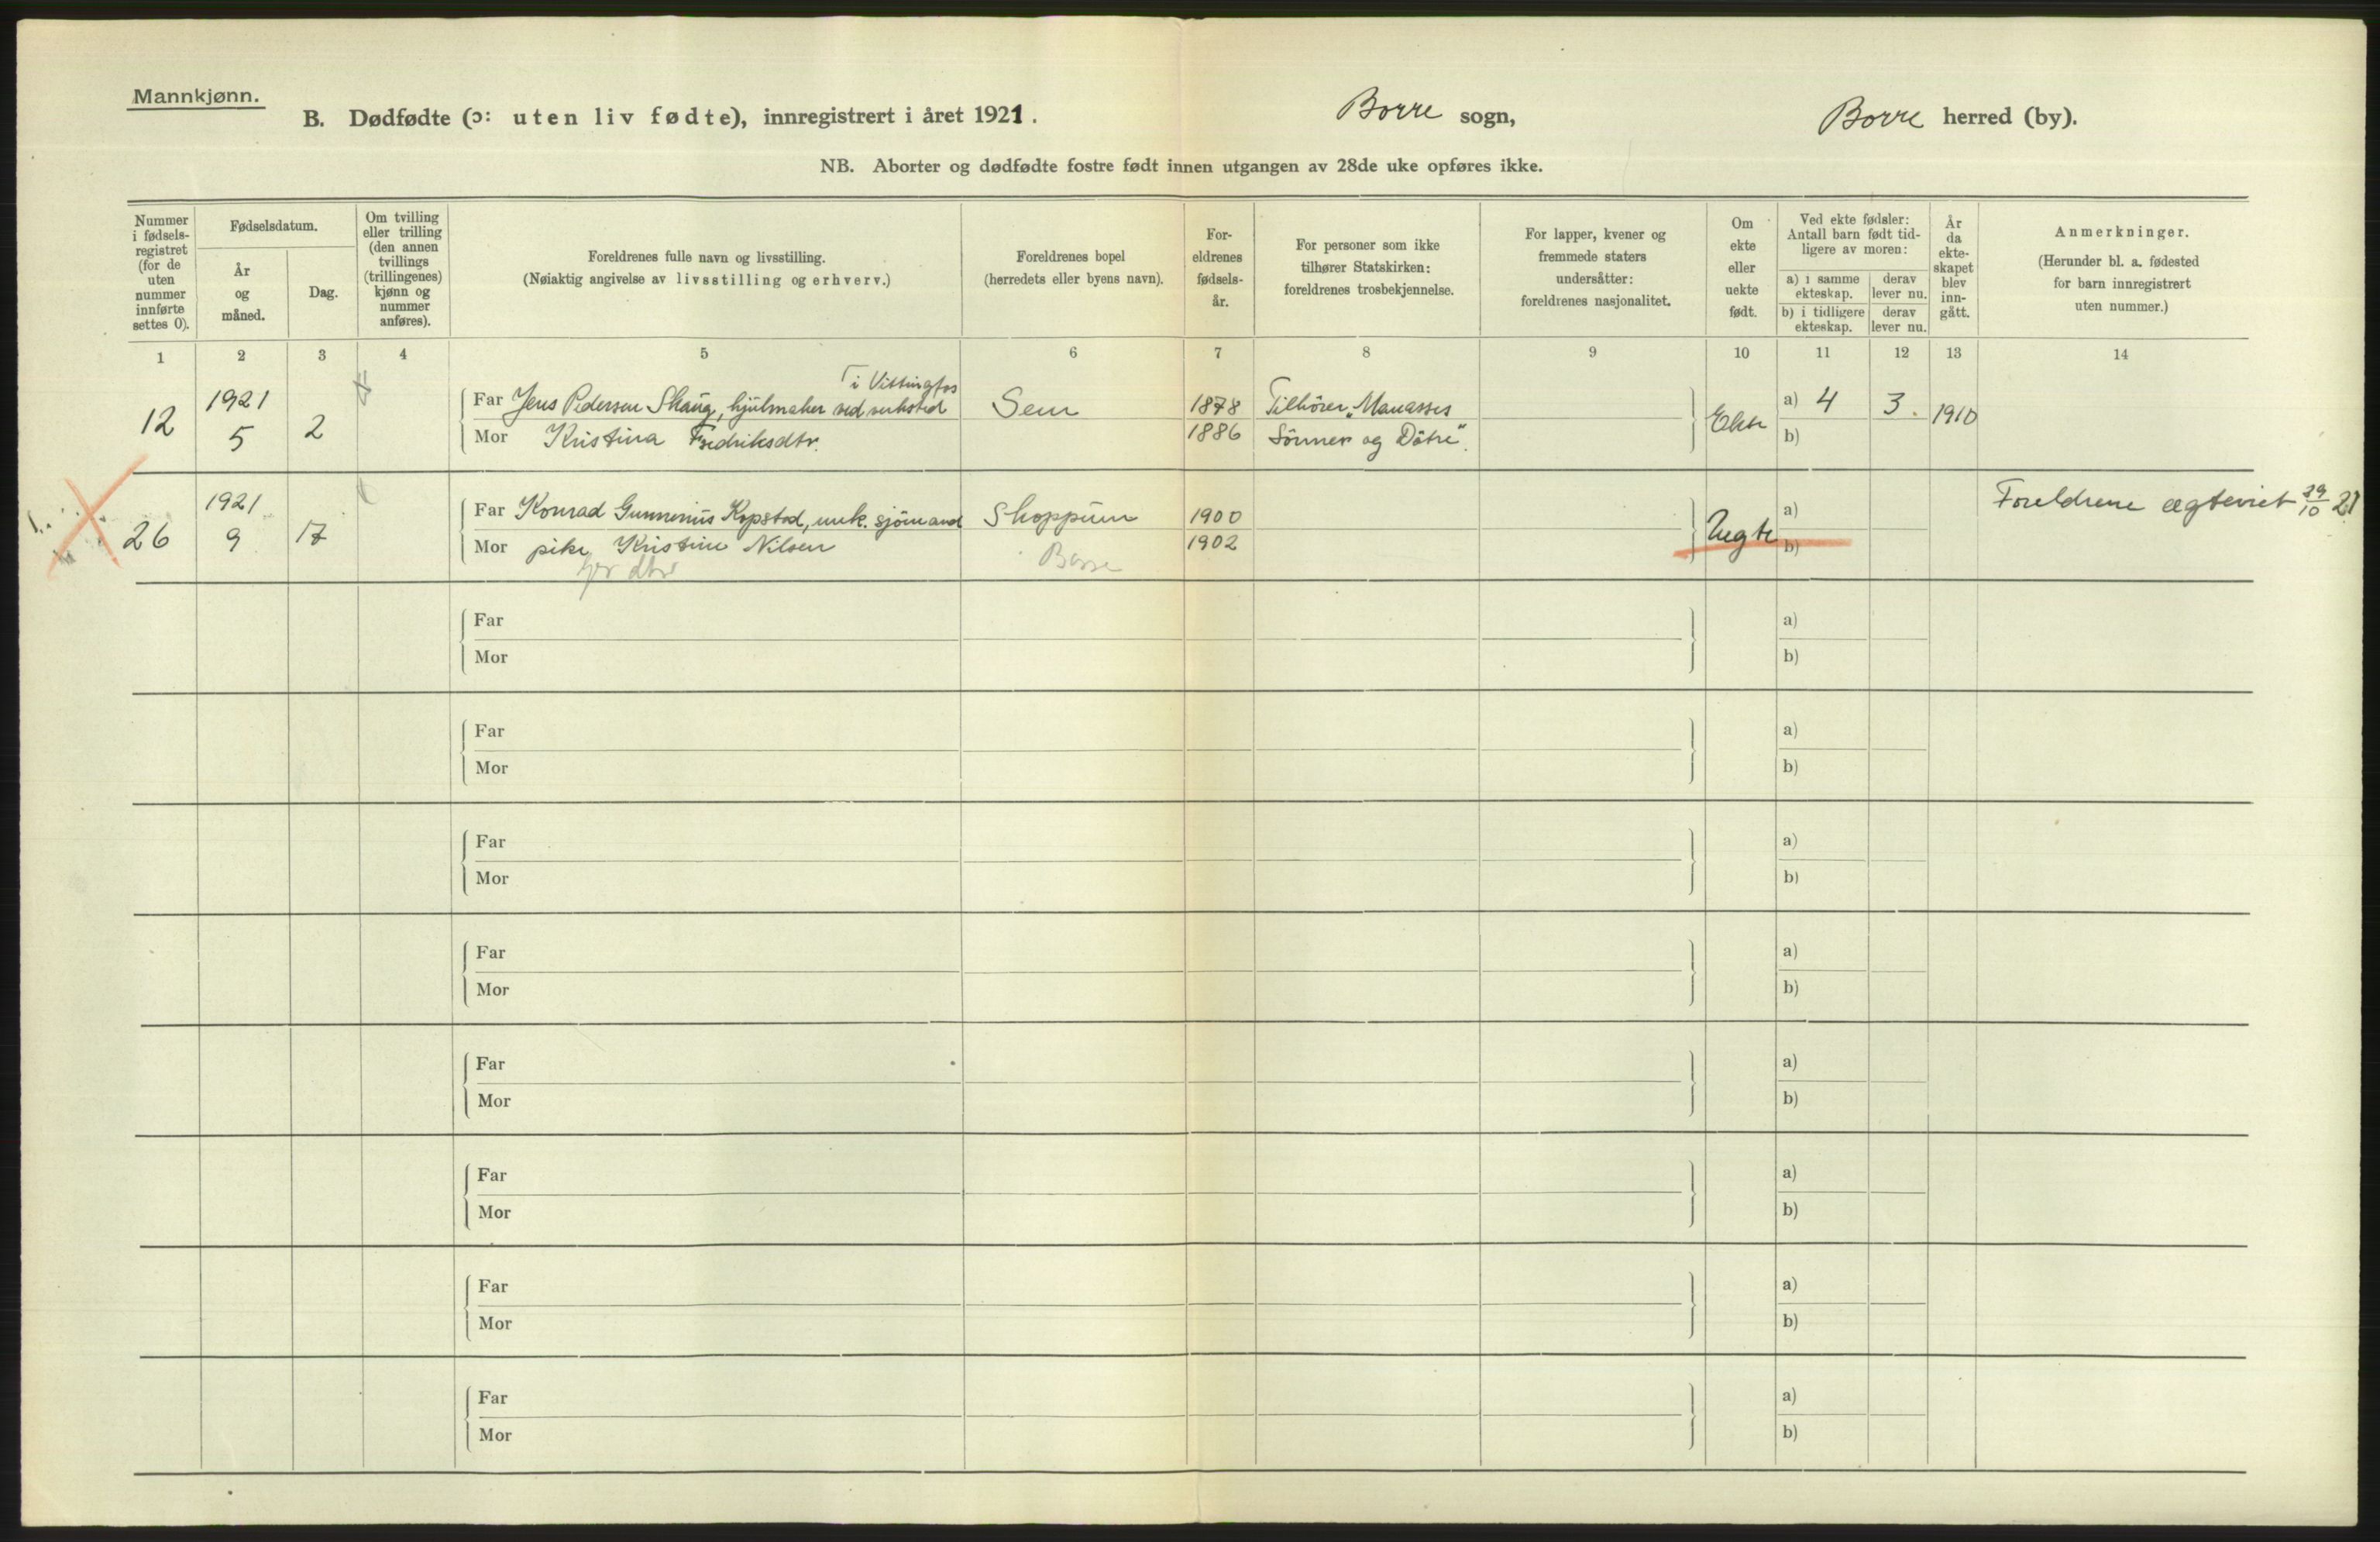 Mannkjønn.
B. Dødfødte (ɔ: uten liv fødte), innregistrert i året 1921.
Borre sogn,
Borre herred (by).
NB. Aborter og dødfødte fostre født innen utgangen av 28de uke opføres ikke.
Nummer i fødsels- registret (for de uten nummer innførte settes 0).
Fødselsdatum.
År og måned.
Dag.
Om tvilling eller trilling (den annen tvillings (trillingenes) kjønn og nummer anføres).
Foreldrenes fulle navn og livsstilling.
(Nøiaktig angivelse av livsstilling og erhverv.)
Foreldrenes bopel
(herredets eller byens navn).
For- eldrenes fødsels- år.
For personer som ikke tilhører Statskirken: foreldrenes trosbekjennelse.
For lapper, kvener og fremmede staters undersåtter: foreldrenes nasjonalitet.
Om ekte eller uekte født.
Ved ekte fødsler: Antall barn født tid- ligere av moren:
a) i samme ekteskap.
derav lever nu.
b) i tidligere ekteskap.
derav lever nu.
År da ekte- skapet blev inn- gått.
Anmerkninger.
(Herunder bl. a. fødested for barn innregistrert uten nummer.)
1 2 3 4 5 6 7 8 9 10 11 12 13 14
i Vittingfos
12 1921 5 2
Far Jens Pedersen Skaug, hjulmaker ved verksted Sem 1878 Tilhører „Manasses a) 4 3. 1910
Mor Kristina Fredriksdtr. 1886 Sönner og Dötre“. Ekte b)
26 1921 9 17
Far Konrad Gunnerius Kopstad, unk. sjömand Skoppum 1900 a) Foreldrene ægteviet 29/10 21
Mor pike Kristine Nilsen 1902 Uegte b)
dtr Borre
Far a)
Mor b)
Far a)
Mor b)
Far a)
Mor b)
Far a)
Mor b)
Far a)
Mor b)
Far a)
Mor b)
Far a)
Mor b)
Far a)
Mor b)